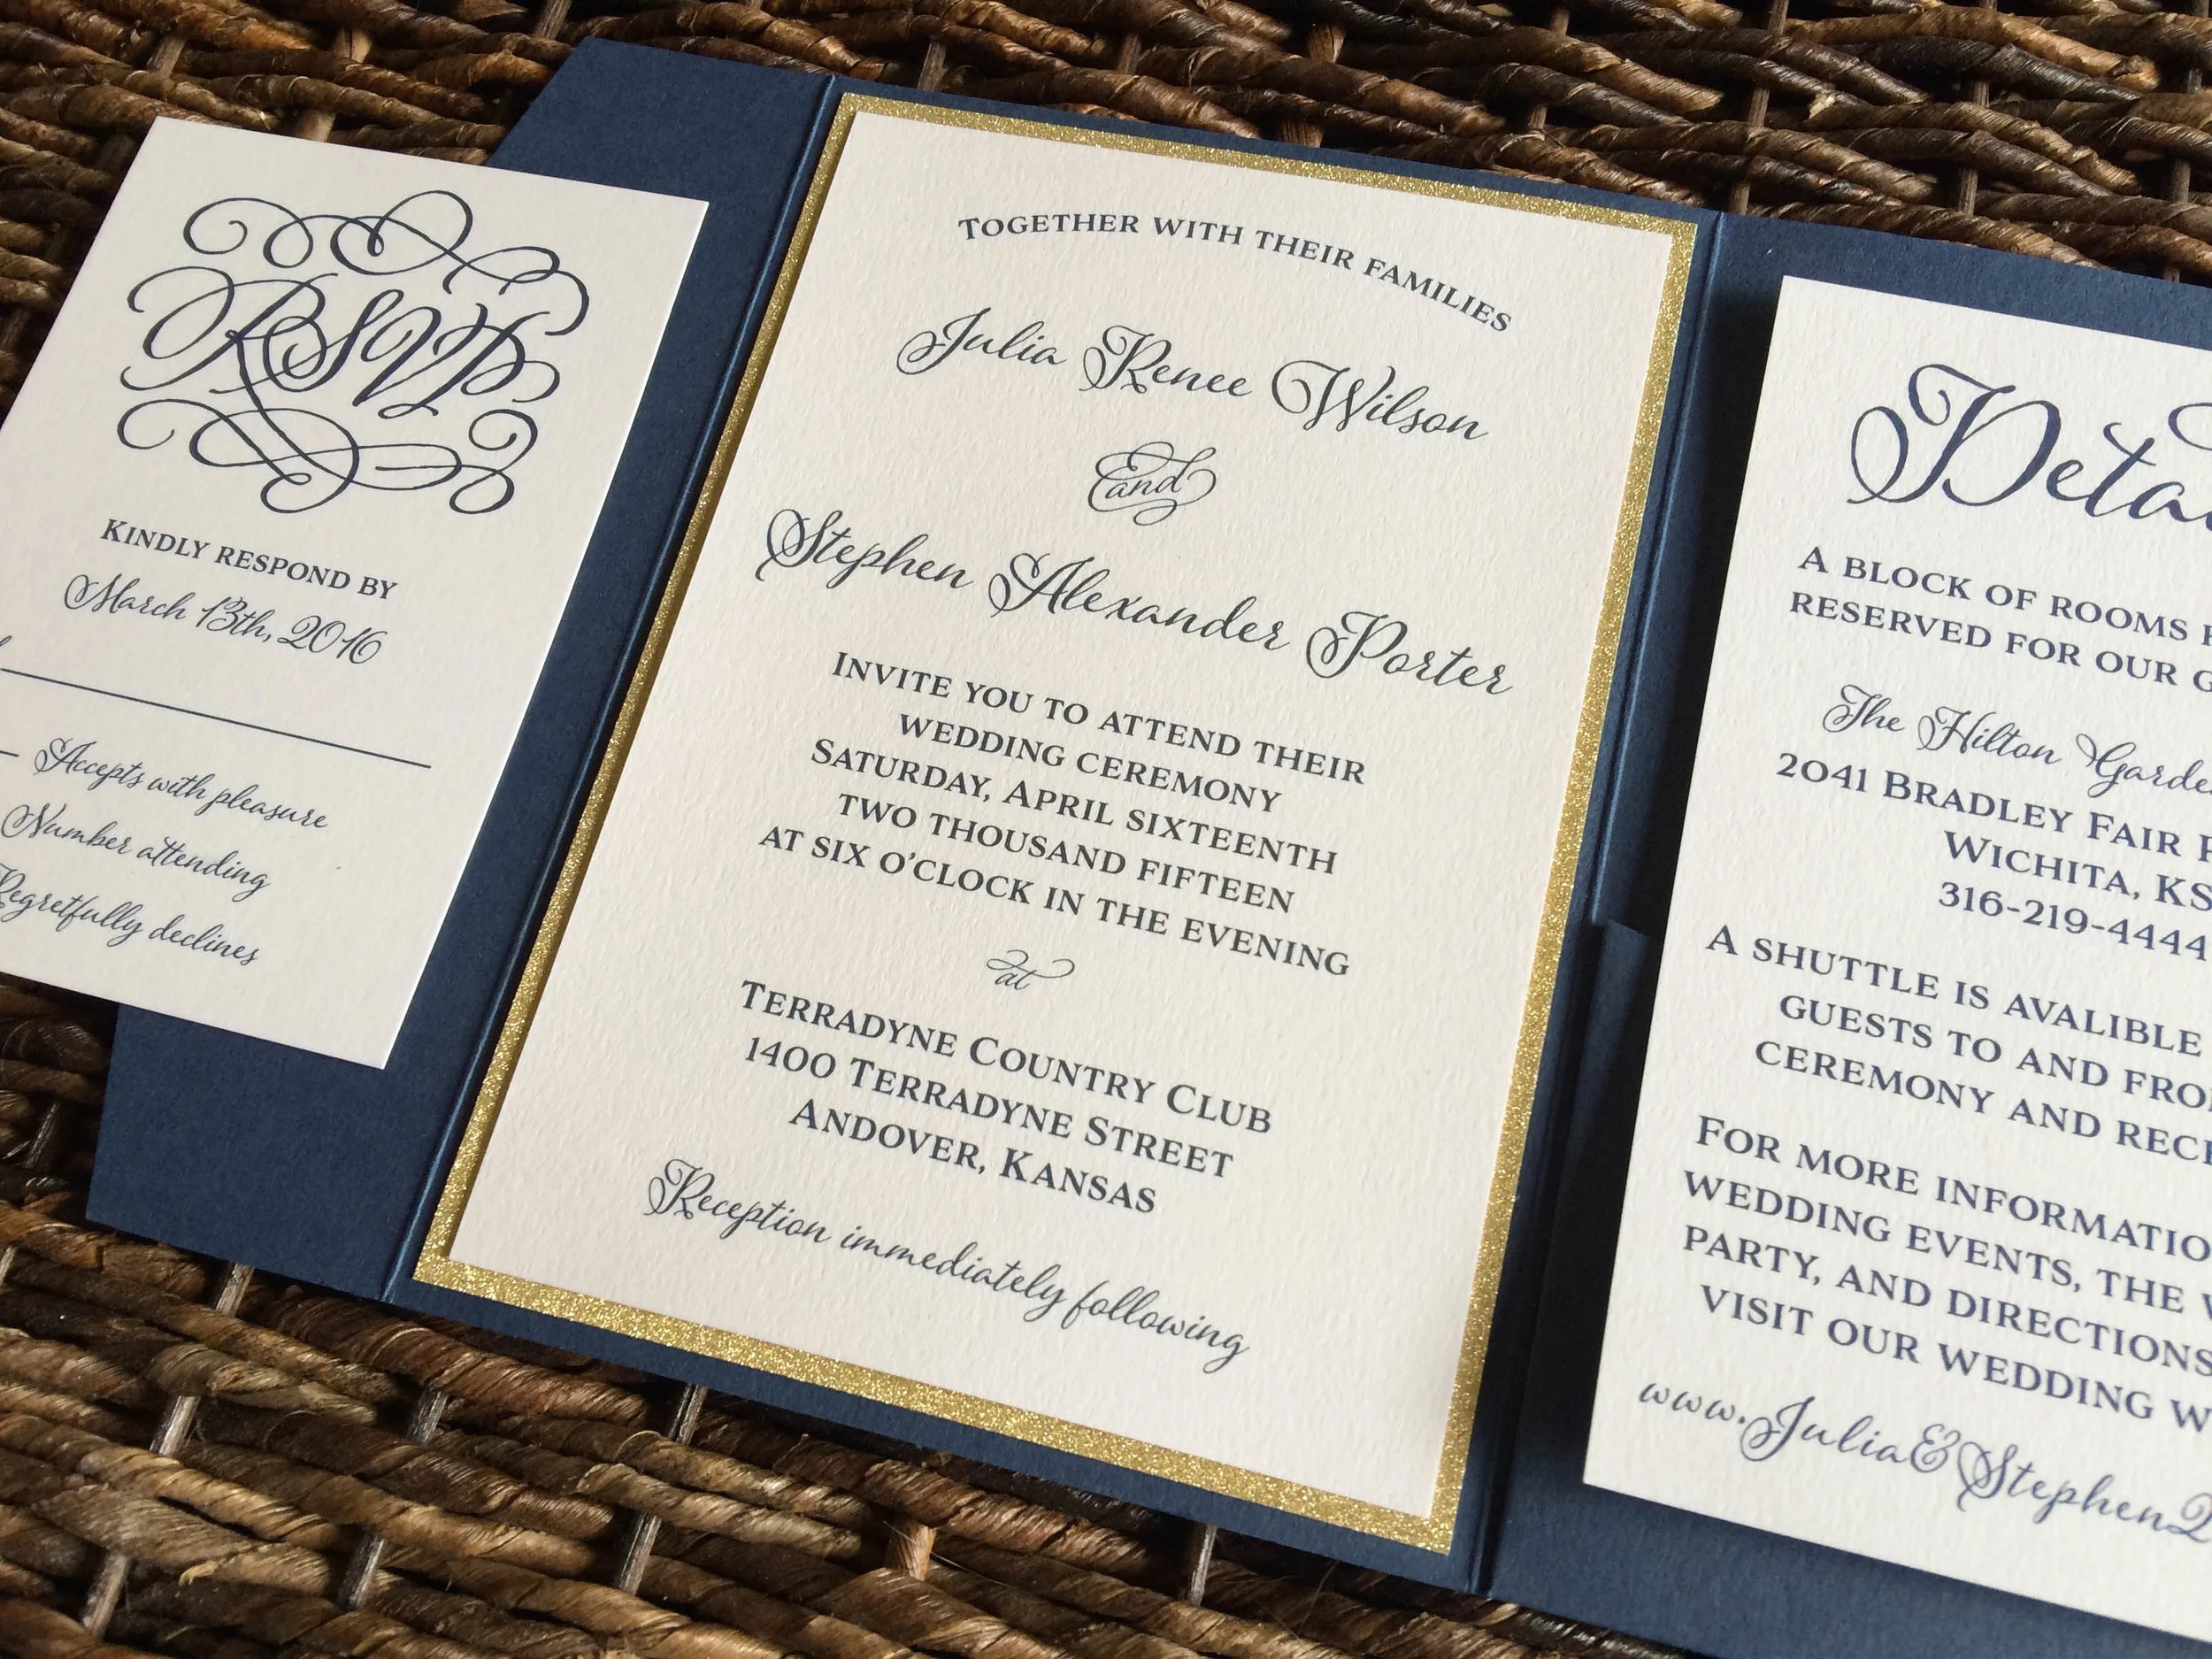 RSVP
Kindly respond by
March 13th, 2016
Accepts with pleasure
Number attending
Regretfully declines
Together with their families
Julia Renee Wilson
and
Stephen Alexander Porter
Invite you to attend their
wedding ceremony
Saturday, April sixteenth
two thousand fifteen
at six o'clock in the evening
at
Terradyne Country Club
1400 Terradyne Street
Andover, Kansas
Reception immediately following
A block of rooms
reserved for our
The Hilton
2041 Bradley Fair
Wichita, KS
316-219-4444
A shuttle is avalible
guests to and
ceremony and
For more
wedding events, the
party, and directions
visit our wedding
www.Julia&Stephen